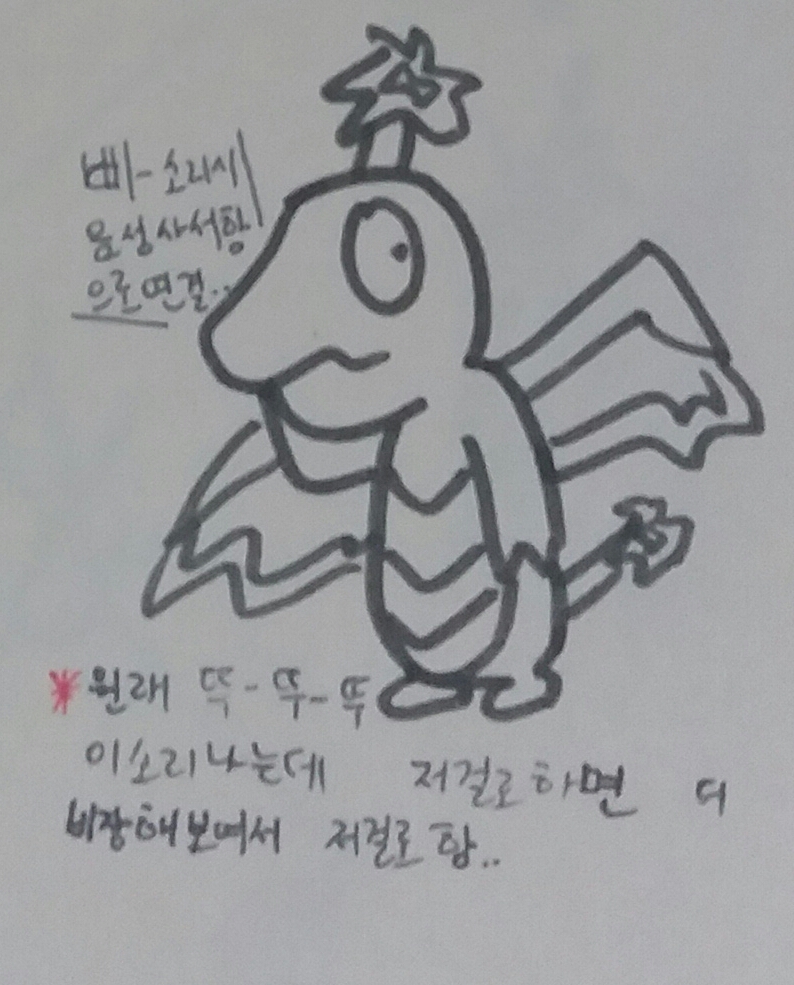 삐-소리시
음성사서함
으로 연결..
*원래 뚝-뚝-뚝
이소리나는데 저걸로하면 더
비장해보여서 저걸로함..